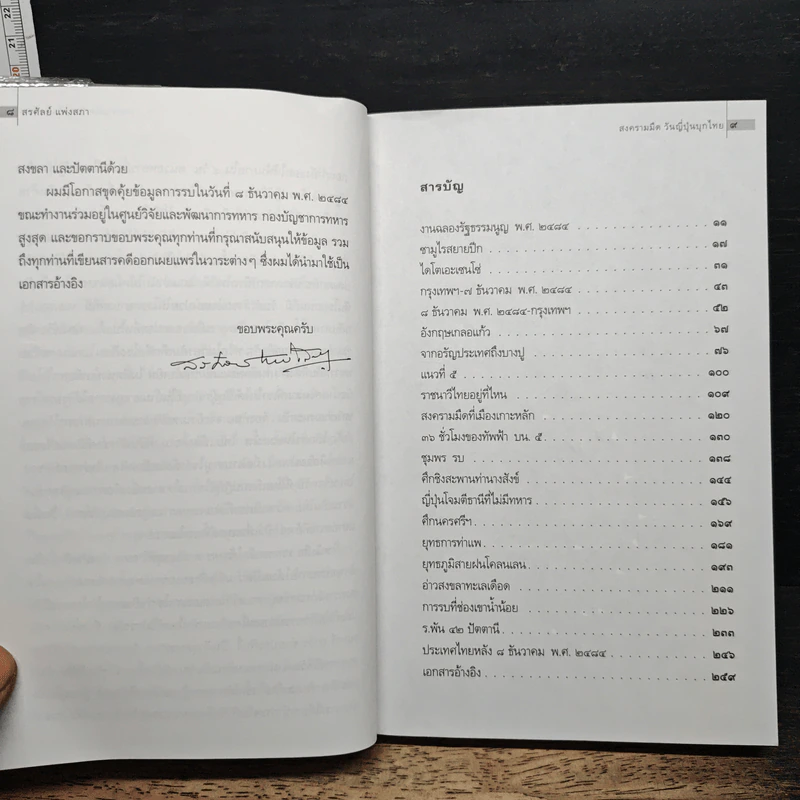 22
21
20
๘ สรศัลย์ แพ่งสภา
สงขลา และปัตตานีด้วย
ผมมีโอกาสขุดคุ้ยข้อมูลการรบในวันที่ ๘ ธันวาคม พ.ศ. ๒๔๘๔
ขณะทำงานร่วมอยู่ในศูนย์วิจัยและพัฒนาการทหาร กองบัญชาการทหาร
สูงสุด และขอกราบขอบพระคุณทุกท่านที่กรุณาสนับสนุนให้ข้อมูล รวม
ถึงทุกท่านที่เขียนสารคดีออกเผยแพร่ในวาระต่างๆ ซึ่งผมได้นำมาใช้เป็น
เอกสารอ้างอิง
ขอบพระคุณครับ
สงครามมืด วันญี่ปุ่นบุกไทย ๙
สารบัญ
งานฉลองรัฐธรรมนูญ พ.ศ. ๒๔๘๔ . . . . . . . . . . ๑๑
ซามูไรสยายปีก . . . . . . . . . . ๑๗
ไดโตเอะเซนโซ่ . . . . . . . . . . ๓๑
กรุงเทพฯ-๗ ธันวาคม พ.ศ. ๒๔๘๔ . . . . . . . . . . ๔๓
๘ ธันวาคม พ.ศ. ๒๔๘๔-กรุงเทพฯ . . . . . . . . . . ๕๒
อังกฤษเกลอแก้ว . . . . . . . . . . ๖๗
จากอรัญประเทศถึงบางปู . . . . . . . . . . ๗๖
แนวที่ ๕ . . . . . . . . . . ๑๐๐
ราชนาวีไทยอยู่ที่ไหน . . . . . . . . . . ๑๐๙
สงครามมืดที่เมืองเกาะหลัก . . . . . . . . . . ๑๒๐
๓๖ ชั่วโมงของทัพฟ้า บน. ๕ . . . . . . . . . . ๑๓๐
ชุมพร รบ . . . . . . . . . . ๑๓๘
ศึกชิงสะพานท่านางสังข์ . . . . . . . . . . ๑๔๔
ญี่ปุ่นโจมตีธานีที่ไม่มีทหาร . . . . . . . . . . ๑๕๖
ศึกนครศรีฯ . . . . . . . . . . ๑๖๙
ยุทธการท่าแพ . . . . . . . . . . ๑๘๑
ยุทธภูมิสายฝนโคลนเลน . . . . . . . . . . ๑๙๓
อ่าวสงขลาทะเลเดือด . . . . . . . . . . ๒๑๑
การรบที่ช่องเขาน้ำน้อย . . . . . . . . . . ๒๒๖
ร.พัน ๔๒ ปัตตานี . . . . . . . . . . ๒๓๓
ประเทศไทยหลัง ๘ ธันวาคม พ.ศ. ๒๔๘๔ . . . . . . . . . . ๒๔๖
เอกสารอ้างอิง . . . . . . . . . . ๒๕๙